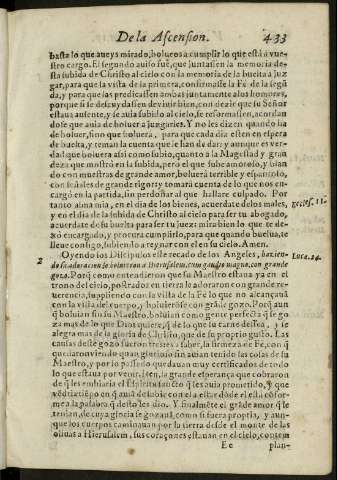 De la Ascension. 433
hasta lo que aueys mirado, bolueos a cumplir lo que està a vue-
stro cargo. El segundo auiso fuè, que juntassen la memoria de-
sta subida de Christo al cielo con la memoria de la buelta a juz
gar, para que la vista de la primera, confirmasse la Fè de la segũ
da, y para que las predicassen ambas juntamente a los hombres,
porque si se descuydassen de viuir bien, con dezir que su Señor
estaua ausente, y se auia subido al cielo, se reformassen, acordan
dose que auia de boluer a juzgarles. Y no les dizen quando ha
de boluer, sino que boluera, para que cada dia esten en espera
de buelta, y teman la cuenta que le han de dar; y aunque es ver-
dad que boluera assi como subio, quanto a la Magestad y gran
deza que mostrò en la subida, pero el que sube amoroso, y blan
do con muestras de grande amor, boluerà terrible y espantoso,
con señales de grande rigor y tomarà cuenta de lo que nos en-
cargò en la partida, sin perdonar al que hallare culpado. Por
tanto alma mia, en el dia de los bienes, acuerdate de los males, Eccles. 11.
y en el dia de la subida de Christo al cielo para ser tu abogado,
acuerdate de su buelta para ser tu juez: mira bien lo que te de-
xò encargado, y procura cumplirlo, para que quando buelua, te
lleue contigo, subiendo a reynar con el en su cielo. Amen.
2 Oyendo los Discipulos este recado de los Angeles, hazien- Luca. 24.
dose adoracion se boluieron a Hierusalem, cum gaudio magno, con grande
gozo. Porq̃ como entendieron que su Maestro estaua ya en el
trono del cielo, postrados en tierra le adoraron con grande re-
uerencia, supliendo con la vista de la Fè lo que no alcançaua
con la vista del cuerpo, y boluierõse con grã gozo. Porq̃ aun
q̃ boluian sin su Maestro, boluian como gente perfecta q̃ se go
za mas de lo que Dios quiere, q̃ de lo que su carne dessea, y se
alegra mas de la gloria de Christo, que de su proprio gusto. Las
causas deste gozo fueron tres: es a saber, la firmeza de Fè, con q̃
quedaron viendo quan glorioso sin auian tenido las cosas de su
Maestro, y por lo passado quedauan muy certificados de todo
lo que estaua por venir. Iten, la grande esperança que cobraron
de q̃ les embiaria el Espiritu santo q̃ les auia prometido, y que
vẽdria tiẽpo en q̃ auiã de subir con el a estar dõde el està cõfor-
me a la palabra q̃ desto les dio. Y finalmẽte el grãde amor q̃ le
tenian, de cuya gloria se gozauã, como si fuera propria, y aun-
que los cuerpos caminauan por la tierra desde el monte de las
oliuas a Hierusalem, sus coraçones estauan en el cielo, contem
Ee plan-